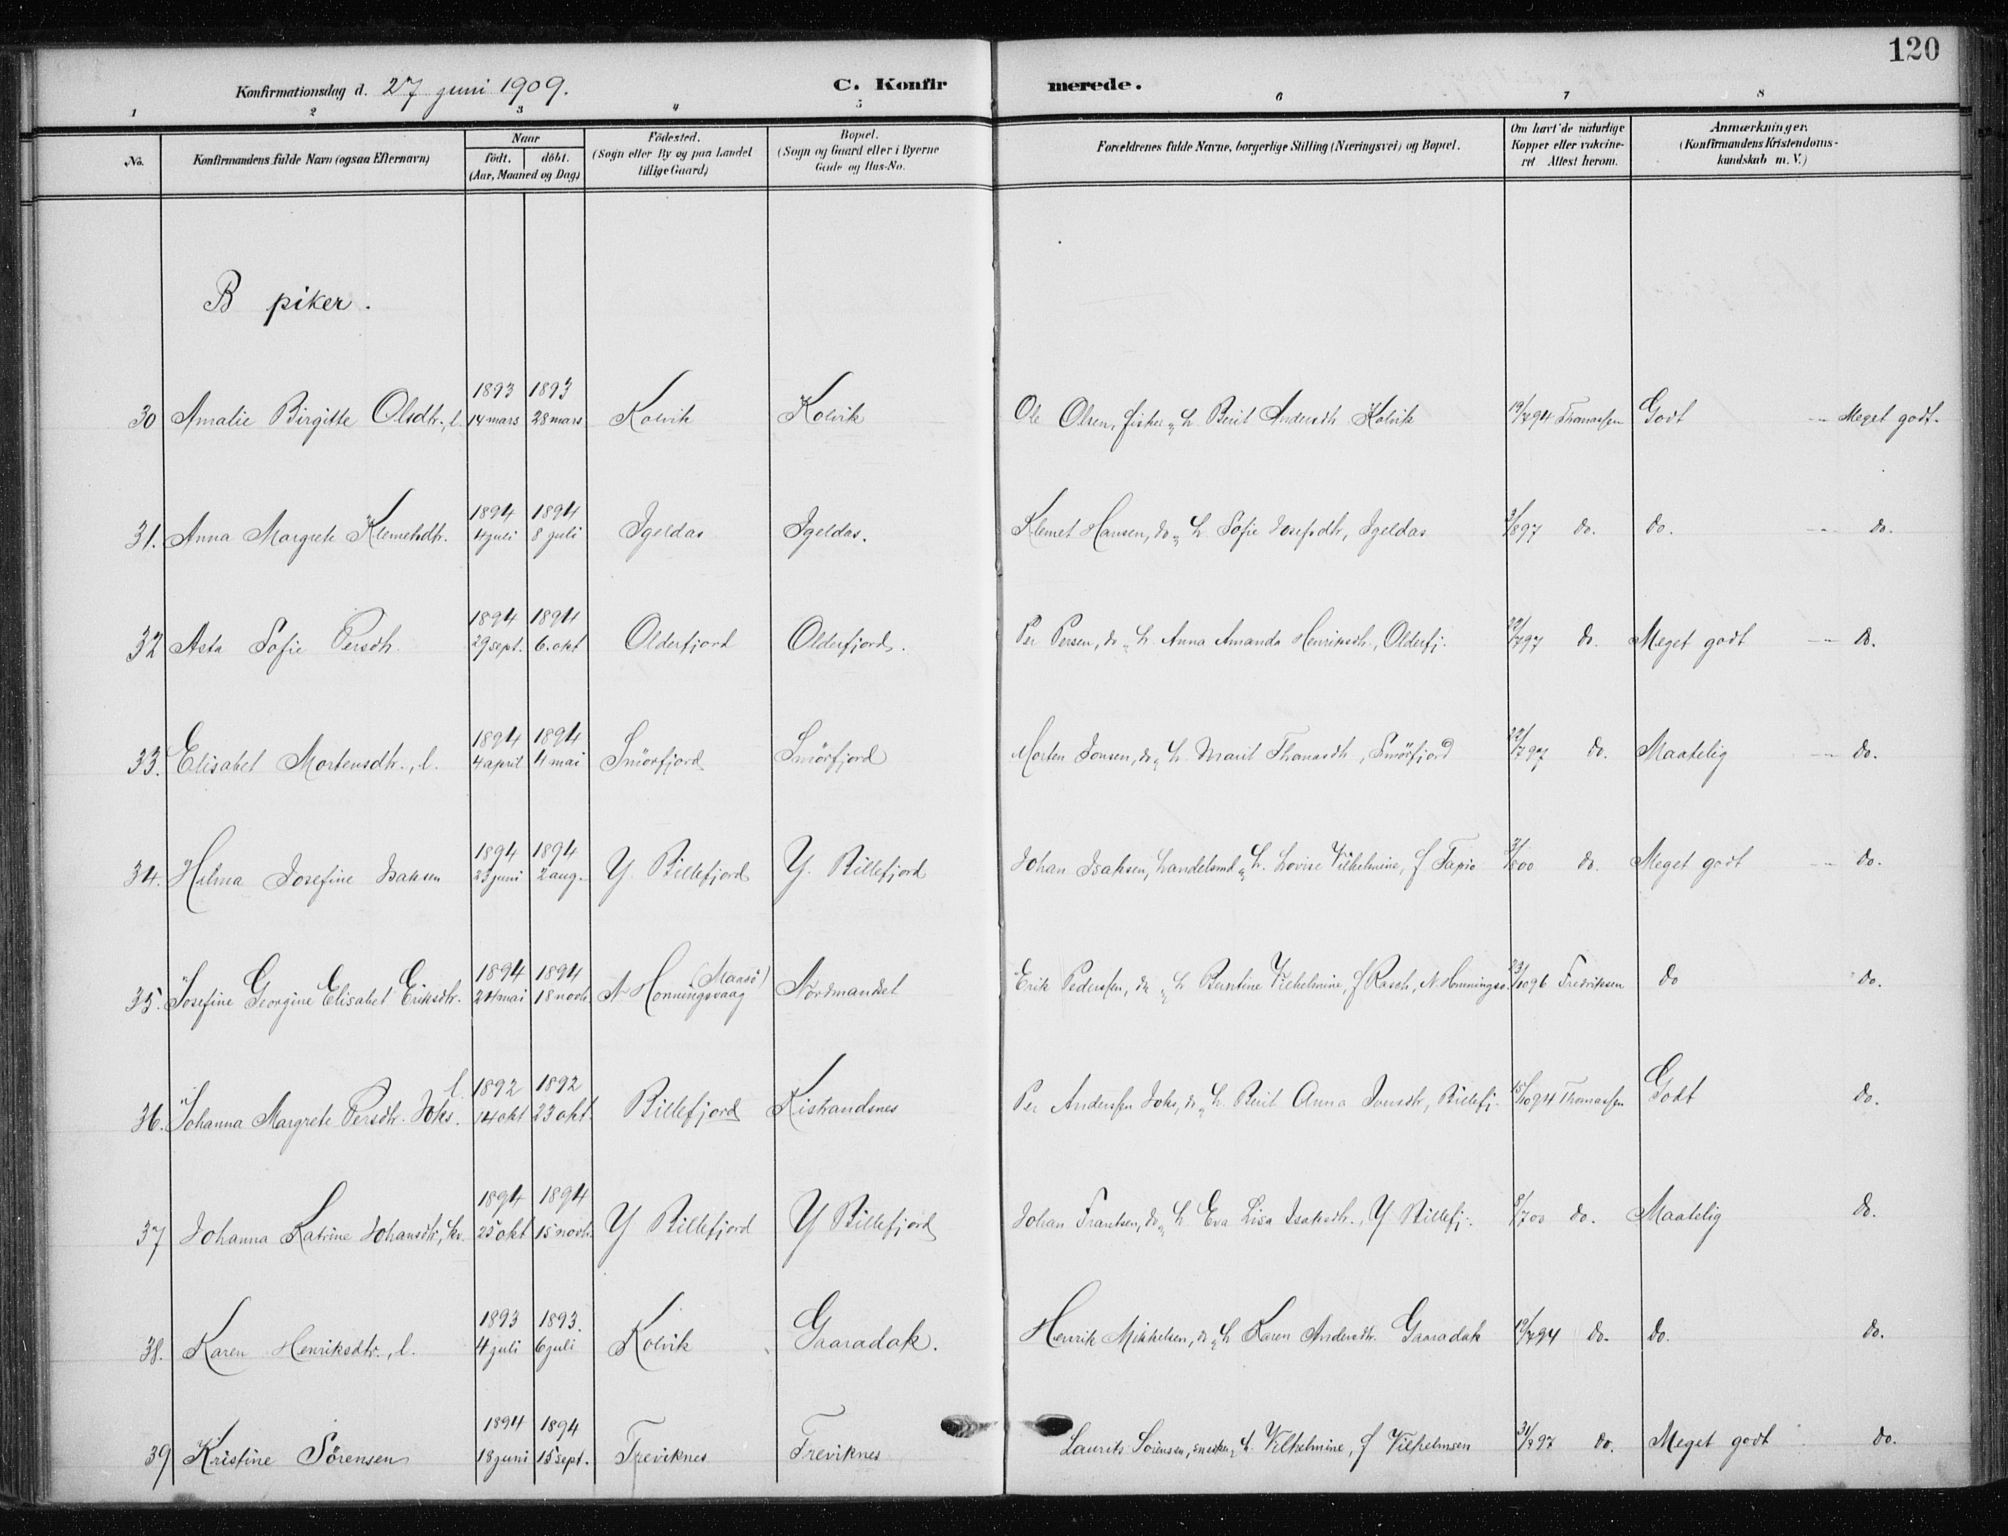 120
Konfirmationsdag d. 27 juni 1909. C. Konfir merede.
1 2 3 4 5 6 7 8
No. Konfirmandens fulde Navn (ogsaa Efternavn) Naar födt. döbt. (Aar, Maaned og Dag) Födested. (Sogn eller By og paa Landet tillige Gaard) Bopæl. (Sogn og Gaard eller i Byerne Gade og Hus-No. Forældrenes fulde Navne, borgerlige Stilling (Næringsvei) og Bopæl. Om havt de naturlige Kopper eller vakcineret Attest herom. Anmærkninger. (Konfirmandens Kristendomskundskab m. V.)
B piker.
1893 1893
30 Amalie Birgitte Olsdtr., l. 14 mars 28 mars Kolvik Kolvik Ole Olsen, fisker, h. Berit Andersdtr Kolvik 19/7 94 Thomassen Godt Meget godt.
1894 1894
31. Anna Margrete Klemetsdtr. 4 juli 8 juli Igeldas Igeldas. Klemet Hansen, do, h. Sofie Josefsdtr, Igeldas 3/8 97 do. do. do.
1894 1894
32 Asta Sofie Persdtr. 29 sept. 6. okt Olderfjord Olderfjord. Per Persen, do, h. Anna Amanda Henriksdtr., Olderfj. 22/7 97 do. Meget godt do.
1894 1894
33. Elisabet Mortensdtr., l. 4 april 4 mai Smörfjord Smörfjord Morten Jonsen, do, h. Marit Thomasdtr, Smörfjord 22/7 97 do. Maatelig do.
1894 1894
34. Hilma Josefine Isaksen 23 juni 2 aug. Y. Billefjord Y. Billefjord Johan Isaksen, handelsmd, h. Lovise Vilhelmine, f Tapio 3/8 00 do. Meget godt do.
1894 1894 (Maasö)
35. Josefine Georgine Elisabet Eriksdtr. 24 mai 18 novb. N Honningsvaag Nordmanset Erik Pederssen, do, h Berntine Vilhelmine, f Rasch, N. Honningsv. 23/10 96 Fredriksen do do.
l. 1892 1892
36. Johanna Margrete Persdtr. Joks. 14 okt 23 okt. Billefjord Kistrandsnes Per Anderssen Joks, do, h. Berit Anna Iversdtr, Billefj. 15/10 94 Thomassen Godt do.
1894 1894
37 Johanna Katrine Johansdtr, kv. 25 okt 15 novb. Y Billefjord Y Billefjord Johan Frantsen, do, h. Eva Lisa Isaksdtr., Y Billefj. 8/7 00 do. Maatelig do.
1893 1893.
38. Karen Henriksdtr., l. 4 juli 6 juli Kolvik Gaaradak. Henrik Mikkelsen, do, h Karen Andersdtr. Gaaradak 19/7 94 do. do. do.
1894 1894
39 Kristine Sörensen 18 juni 15 sept. Treviknes Treviknes Laurits Sörensen, snekker, h. Vilhelmine, f Vilhelmsen 31/7 97 do. Meget godt do.